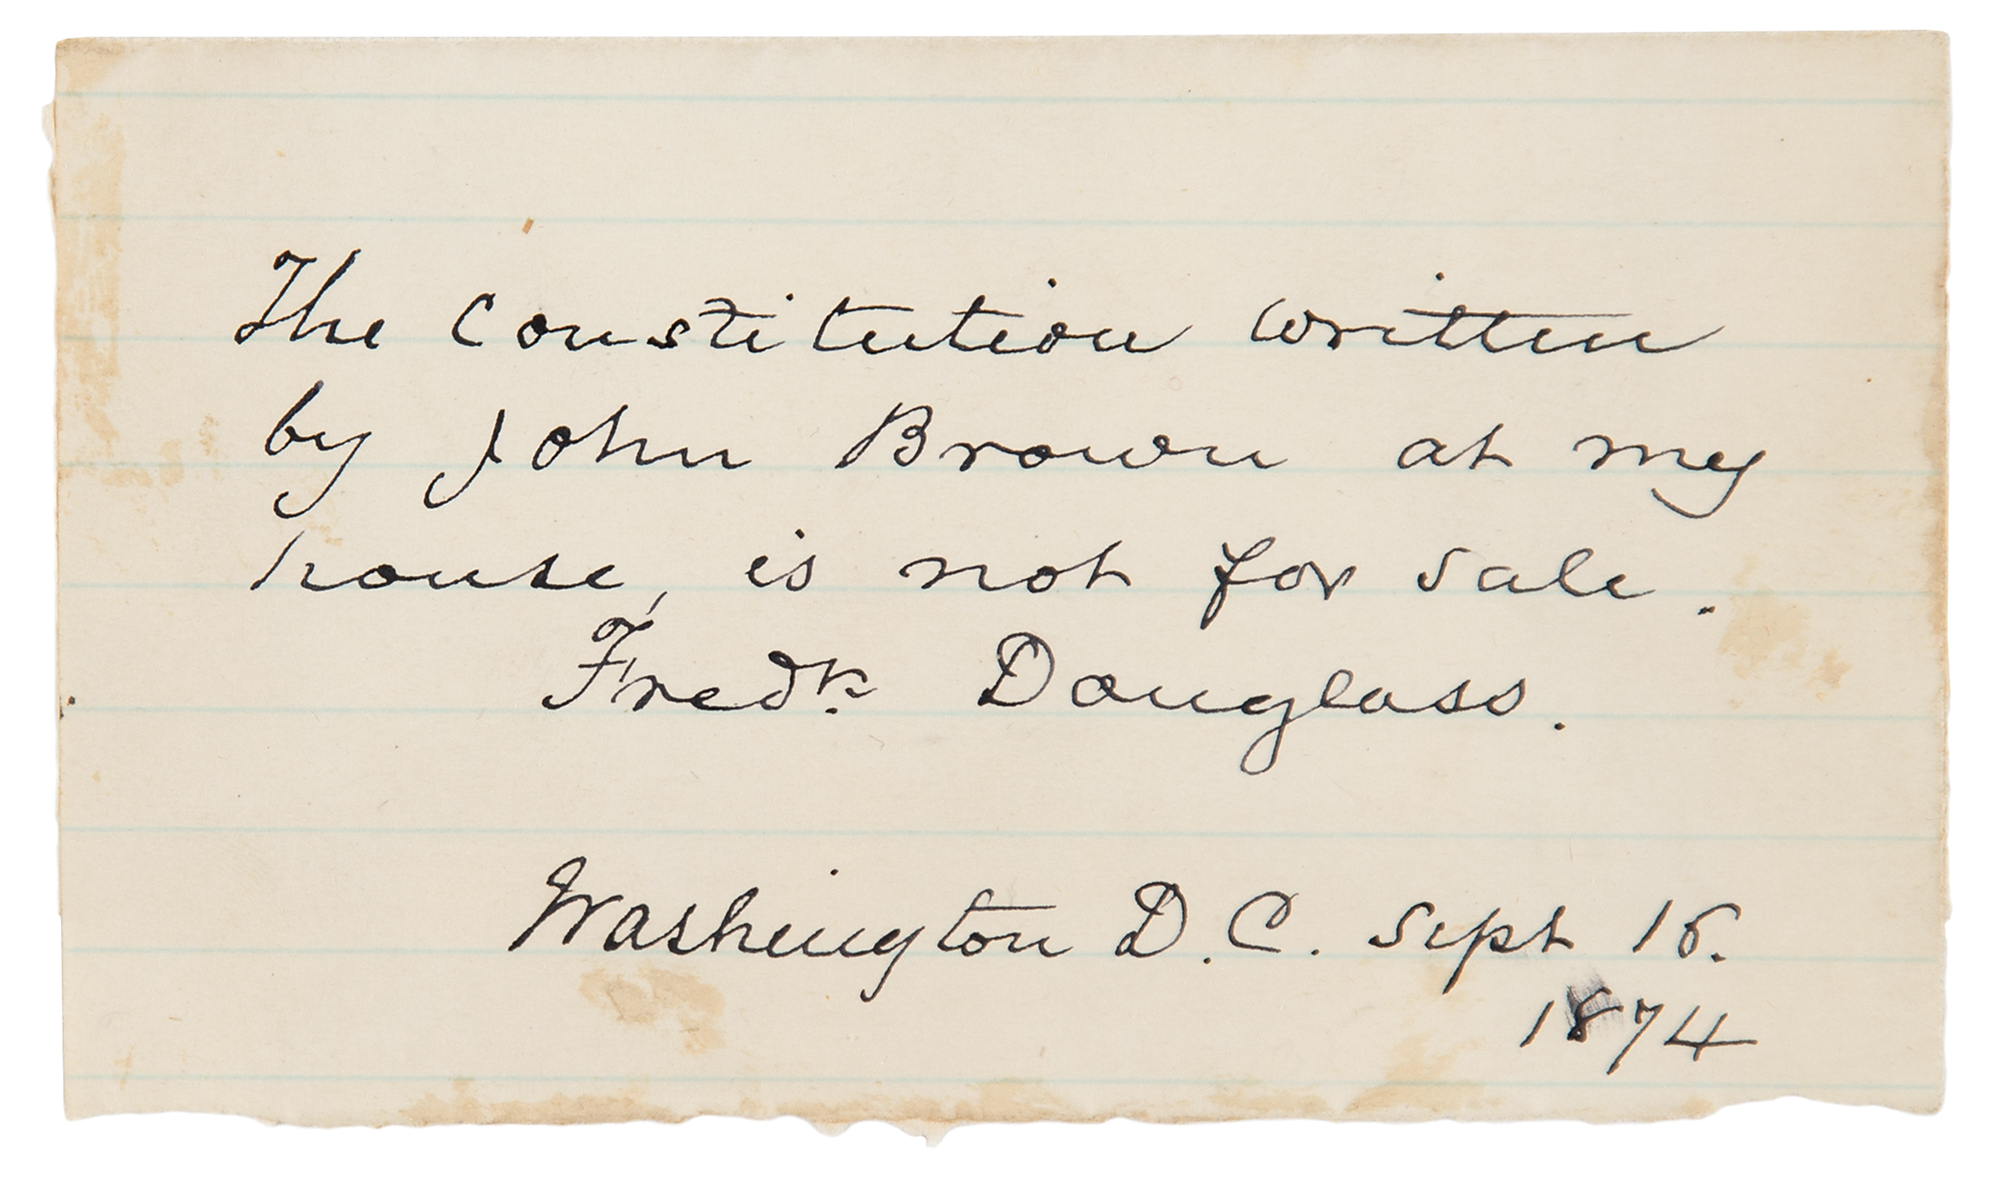 The Constitution written
by John Brown at my
house, is not for sale.
Fredk. Douglass.
Washington D.C. Sept 16.
1874